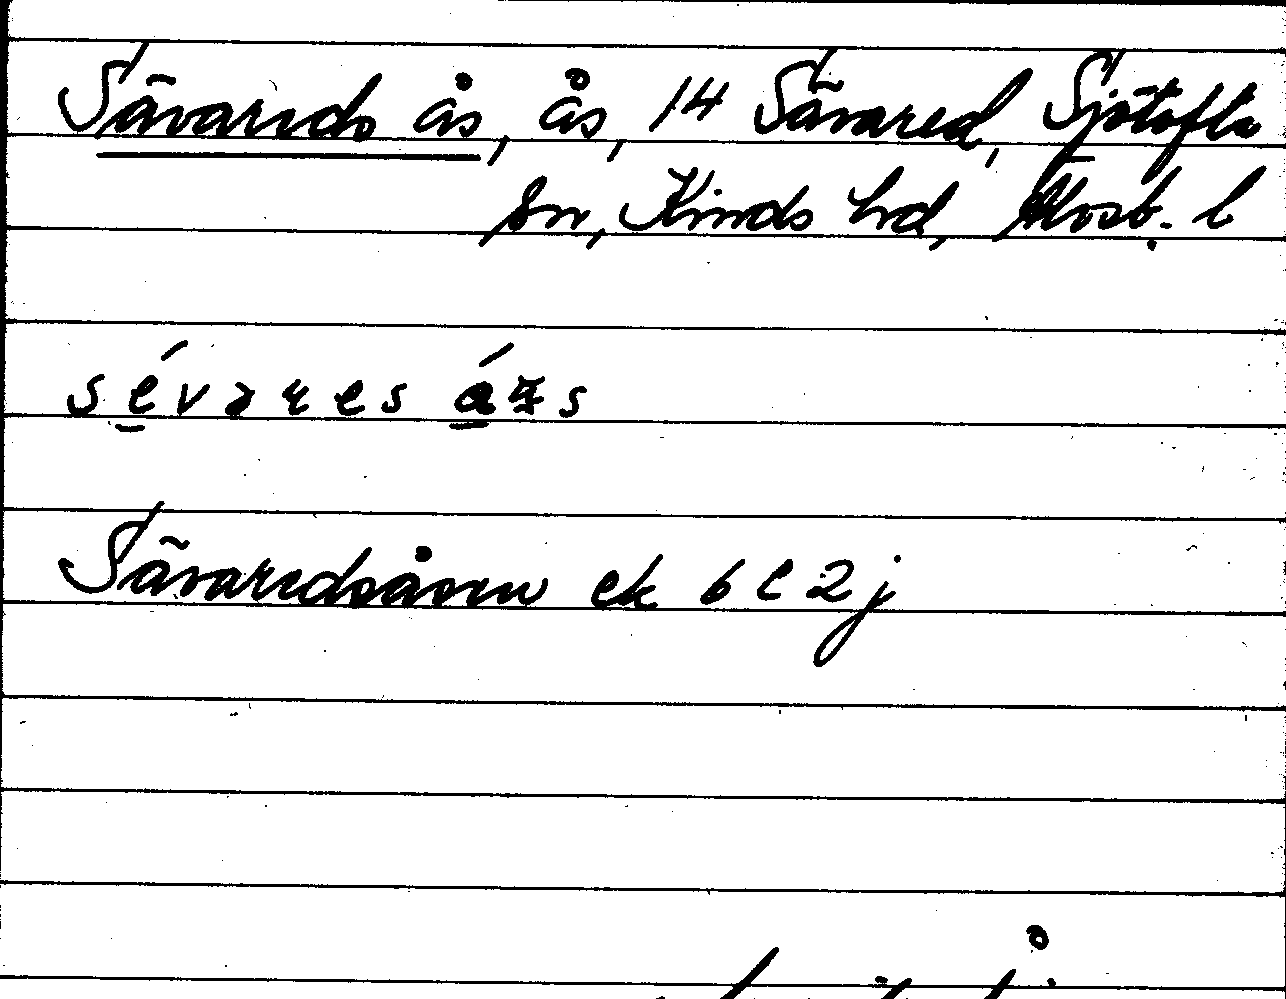 Sävareds ås, ås, 14 Sävared, Sjötofta
sn, Kinds hd, Älvsb. l
sévares ás
Sävaredsåsen ek 6 e 2 j